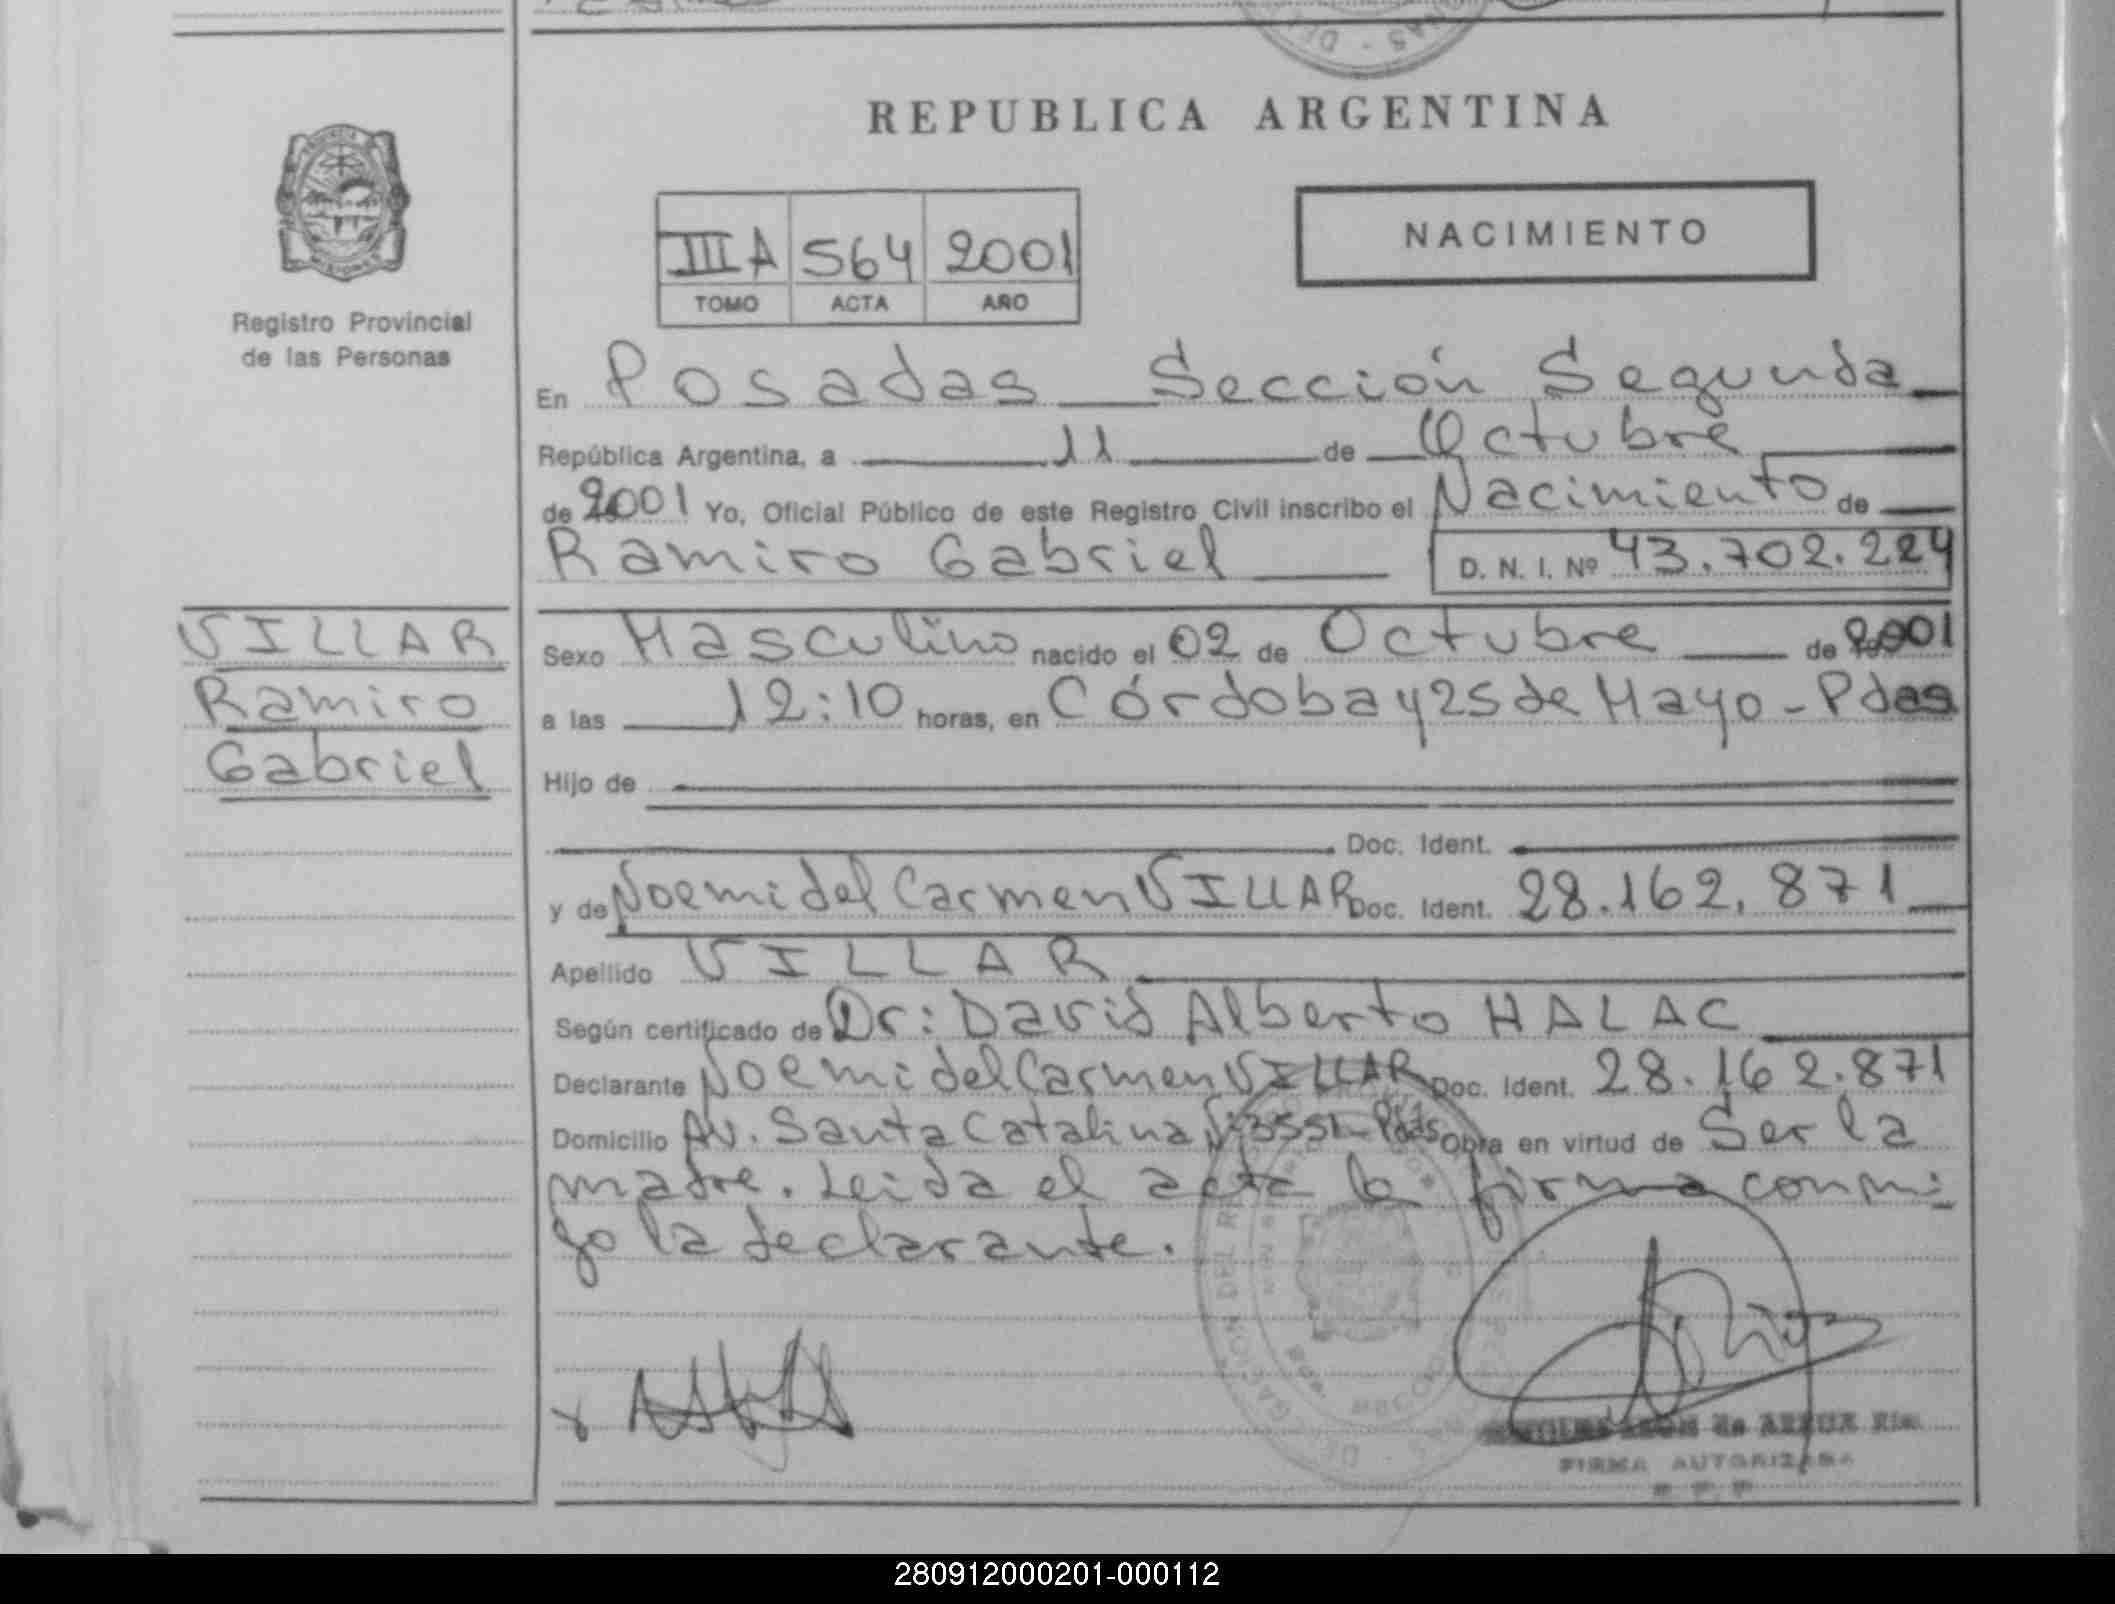 REPUBLICA ARGENTINA
NACIMIENTO
IIIA 564 2001
TOMO ACTA AÑO
Registro Provincial
de las Personas
En Posadas Sección Segunda
República Argentina, a 11 de Octubre
de 2001 Yo, Oficial Público de este Registro Civil inscribo el Nacimiento de
Ramiro Gabriel D. N. I. Nº 43.702.224
VILLAR
Ramiro
Gabriel
Sexo Masculino nacido el 02 de Octubre de 2001
a las 12:10 horas, en Córdoba y 25 de Mayo - Pdas
Hijo de
Doc. Ident.
y de Noemi del Carmen VILLAR Doc. Ident. 28.162.871
Apellido VILLAR
Según certificado de Dr: David Alberto HALAC
Declarante Noemi del Carmen VILLAR Doc. Ident. 28.162.871
Domicilio Av. Santa Catalina Nº 3551 - Pdas Obra en virtud de Ser la
madre. Leida el acta la firma conmi
go la declarante.
de
FIRMA AUTORIZADA
280912000201-000112